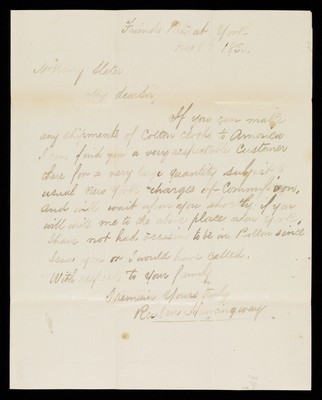 Friends at York
185
Slater
My dear Sir,
If you can make
any shipments of Cotton cloths to America
I can find you a very respectable Customer
there for a very large quantity subject to
usual New York charges of Commission.
And will wait upon you shortly if you
will write me to the above place near York.
I have not had occasion to be in Bolton since
I seen you or I would have called.
With respects to your family
I remain Yours truly
Hemingway